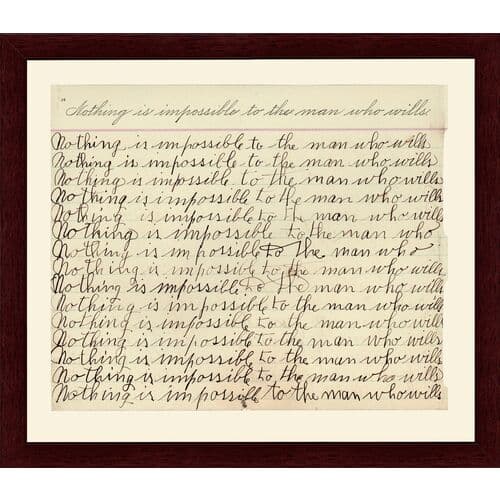 "Nothing is impossible to the man who wills.
Nothing is impossible to the man who wills
Nothing is impossible to the man who wills
Nothing is impossible to the man who wills
Nothing is impossible to the man who wills
Nothing is impossible to the man who wills
Nothing is impossible to the man who
Nothing is impossible to the man who
Nothing is impossible to the man who wills
Nothing is impossible to the man who wills
Nothing is impossible to the man who wills
Nothing is impossible to the man who wills
Nothing is impossible to the man who wills
Nothing is impossible to the man who wills
Nothing is impossible to the man who wills
Nothing is impossible to the man who wills